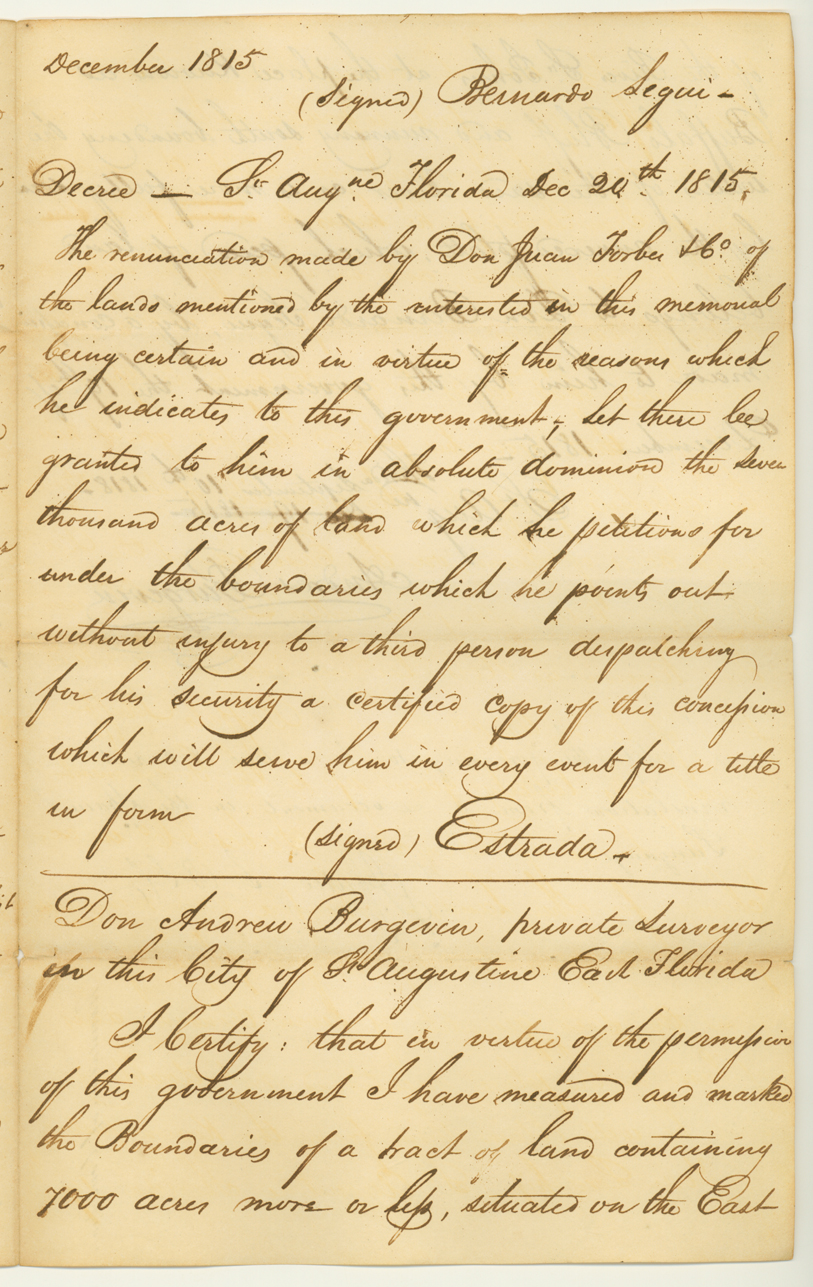 December 1815
(signed) Bernardo Segui -
Decree — St. Augne Florida Dec 20th. 1815.
The renunciation made by Don Juan Forbes & Co of
the lands mentioned by the interested in this memorial
being certain and in virtue of the reasons which
he indicates to this government, Let there be
granted to him in absolute dominion the seven
thousand acres of land which he petitions for
under the boundaries which he points out
without injury to a third person dispatching
for his security a certified copy of this concession
which will serve him in every event for a title
in form
(signed) Estrada -
Don Andrew Burgevin, private surveyor
in this City of St. Augustine East Florida
I Certify: that in virtue of the permission
of this government I have measured and marked
the Boundaries of a tract of land containing
7000 acres more or less, situated on the East